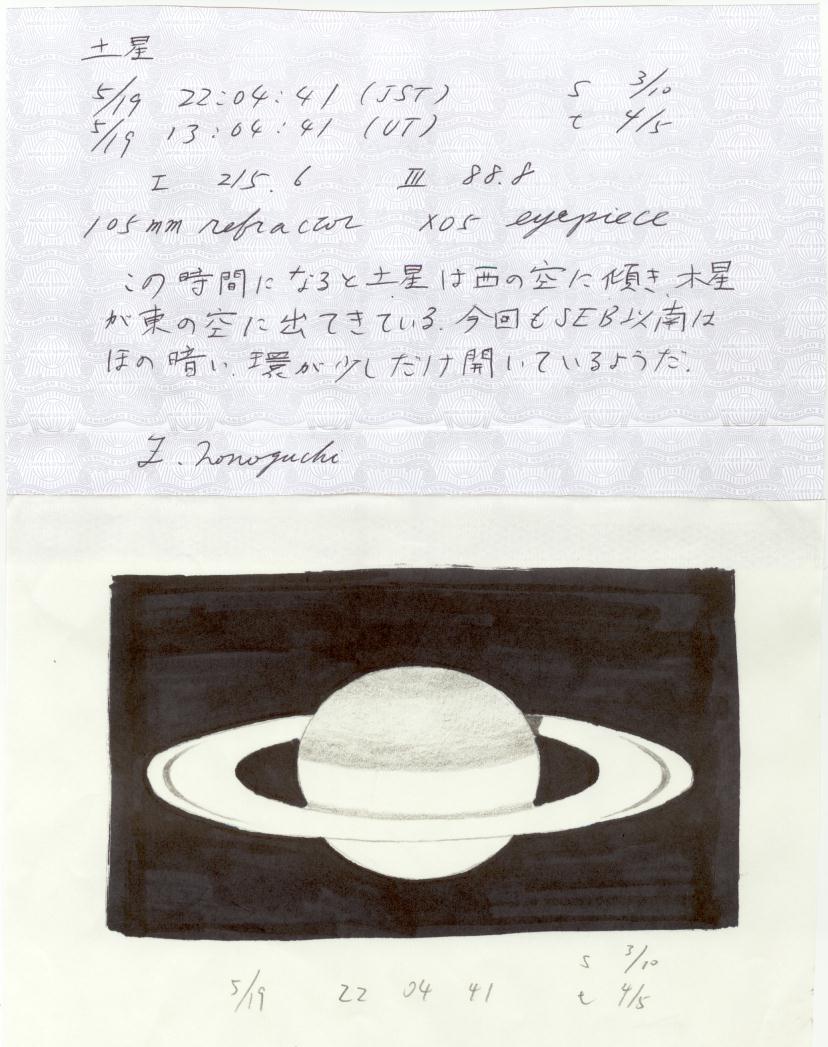 土星
5/19 22:04:41 (JST) S 3/10
5/19 13:04:41 (UT) t 4/5
I 215.6 III 88.8
105mm refractor XO5 eyepiece
この時間になると土星は西の空に傾き、木星
が東の空に出てきている。今回もSEB以南は
ほの暗い。環が少しだけ開いているようだ。
nonoguchi
S 3/10
5/19 22 04 41 t 4/5